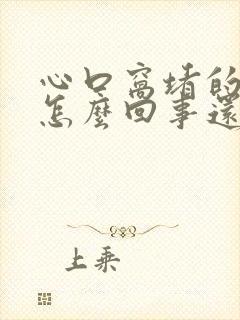 心口窝堵的
怎麼回事還
上乘